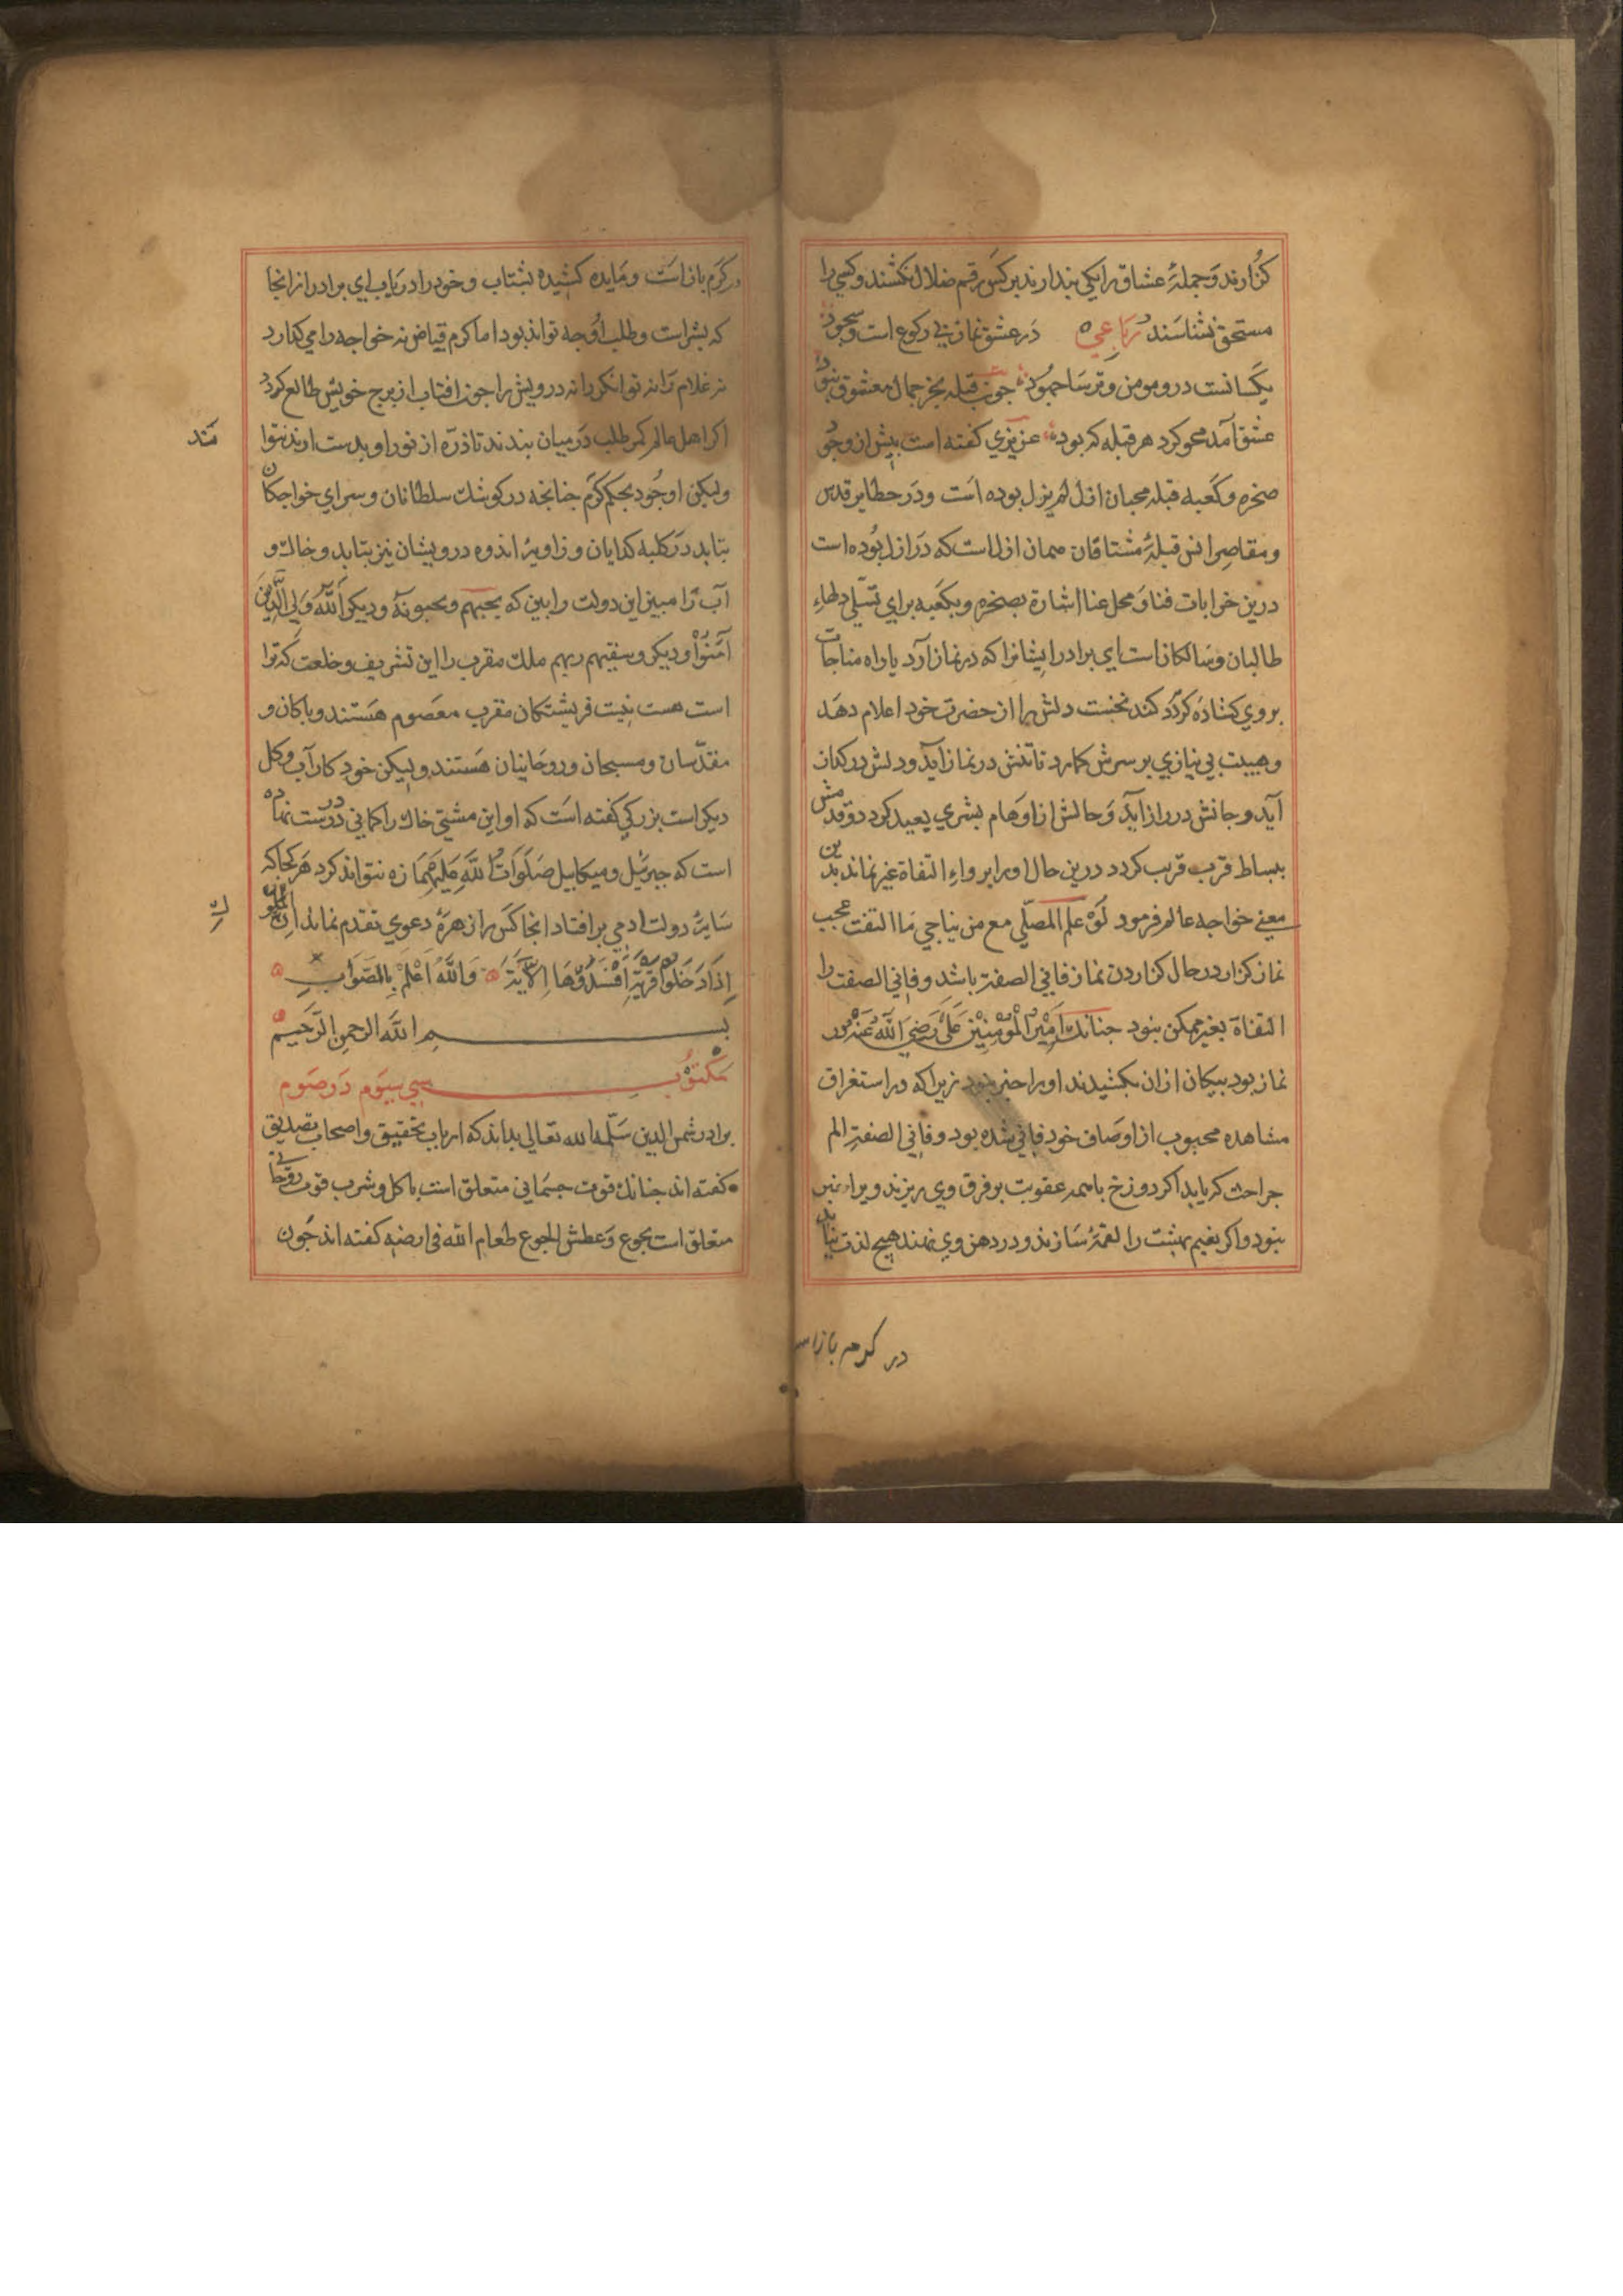 کزارند و جملهٔ عشاق را یکی پندارند بر کس رقم ضلال نکشند و کسی را
مستحق نشناسند رباعی در عشق نماز بی رکوع است و سجود
یکسانست درو مومن و ترسا جهود چون قبله بجز جمال معشوق نبود
عشق آمد محو کرد هر قبله که بود عزیزی کفته است پیش از وجود
صخره و کعبه قبله محبان ازل لم یزل بوده است و در حظایر قدس
و مقاصر انس قبلهٔ مشتاقان همان ازل است که در ازل بوده است
درین خرابات فنا و محل عنا اشارة بصخره و بکعبه برای تسلی دلهاء
طالبان و سالکان است ای برادر ایشانرا که در نماز آرد یا راه مناجات
بر وی کشاده کردد کند نخست دلش را از حضرت خود اعلام دهد
و هیبت بی نیازی بر سرش کمارد تا تنش در نماز آید و دلش در کداز
آید و جانش در راز آید و حالش از اوهام بشری بعید کردد و قدمش
ببساط قرب قریب کردد درین حال او را پرواء التفاة غیر نماند بدین
معنی خواجه عالم فرمود لو علم المصلی مع من یناجی ما التفت عجب
نماز کزار در حال کزاردن نماز فانی الصفة باشد و فانی الصفت را
التفاة بغیر ممکن نبود چنانک امیر المؤمنین علی رضی الله عنه در
نماز بود پیکان ازان بکشیدند او را خبر نبود زیرا که در استغراق
مشاهده محبوب از اوصاف خود فانی شده بود و فانی الصفة الم
جراحت کی یابد اکر دوزخ با همه عقوبت بر فرق وی ریزند ویرا خبر
نبود و اکر نعیم بهشت را لقمهٔ سازند و در دهن وی نهند هیچ لذت نیابد
در کرم بازاس
در کرم باز است و مایده کشیده بشتاب و خود را دریاب ای برادر از انجا
که بشر است و طلب او چه تواند بود اما کرم فیاض نه خواجه را می کذارد
نه غلام را نه توانکر را نه درویش را چون افتاب از برج خویش طالع کردد
اکر اهل عالم کمر طلب در میان بندند تا ذره از نور او بدست ارند نتوا
نند
ولیکن او جود بحکم کرم چنانچه در کوشک سلطانان و سرای خواجکان
بتابد در کلبه کدایان و زاویهٔ اندوه درویشان نیز بتابد و خاک و
آب را مبین این دولت را بین که یحبهم و یحبونه و دیکر الله ولی الذین
آمنوا و دیکر و سقیهم ربهم ملک مقرب را این تشریف و خلعت که ترا
است هست نیت فریشتکان مقرب معصوم هستند و پاکان و
مقدسان و مسبحان و روحانیان هستند ولیکن خود کار آب و کل
دیکر است بزرکی کفته است که او این مشتی خاک را کمانی درست نماده
است که جبرئیل و میکاییل صلوات الله علیهما زه نتواند کرد هر کجا که
سایهٔ دولت ادمی بر افتاد انجا کس را زهرهٔ دعوی تقدم نماند ان الملو
ک
اذا دخلوا قریة افسدوها الآیة والله اعلم بالصواب
بسم الله الرحمن الرحیم
مکتوب سی سیوم در صوم
برادر شمس الدین سلمه الله تعالی بداند که ارباب تحقیق و اصحاب تصدیق
کفته اند چنانک قوت جسمانی متعلق است باکل و شرب قوت روحانی
متعلق است بجوع و عطش الجوع طعام الله فی ارضه کفته اند چون